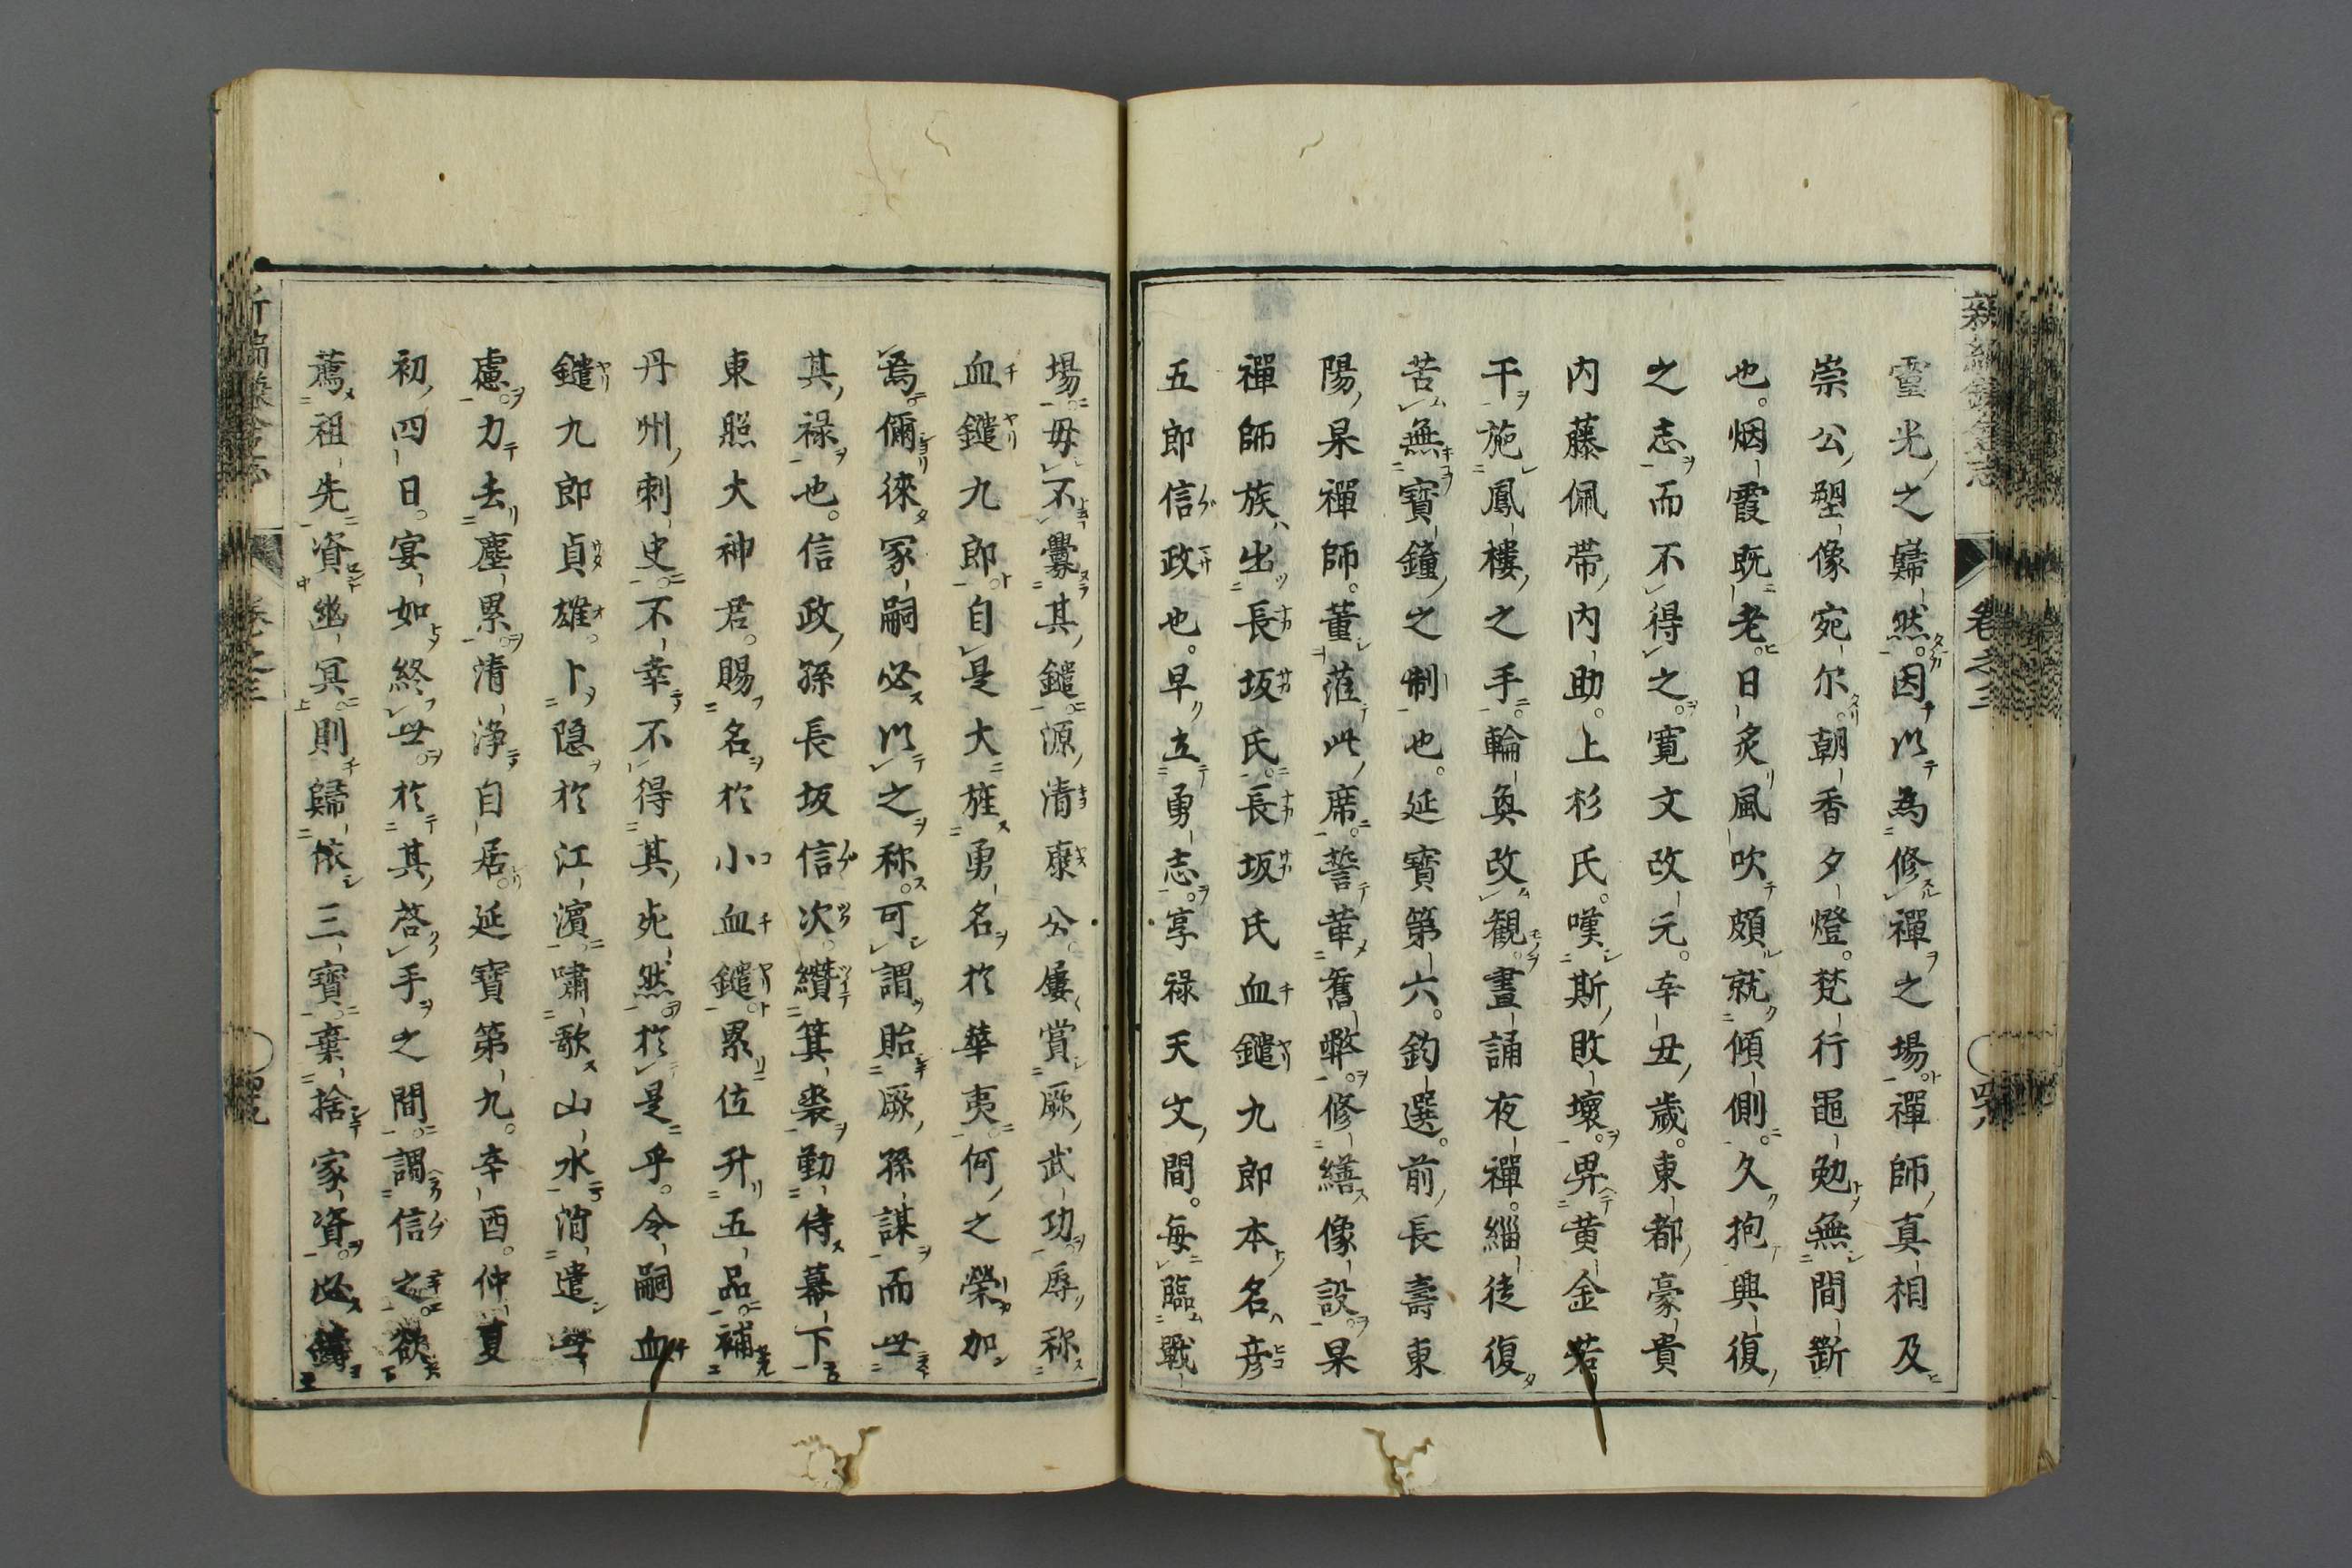 新編鎌倉志 卷之三 四八
霊光之巋然因以為修禪之場禪師真相及
崇公塑像宛尔朝香夕燈。梵行黽勉無間斷
也。烟霞既老。日炙風吹頗就傾側。久抱興復
之志而不得之。寛文改元。辛丑歳。東都豪貴
内藤佩帯内助。上杉氏。嘆斯敗壞。畀黄金若
干施鳳樓之手。輪奐改観晝誦夜禪。緇徒復
苦無寶鐘之制也。延寶第六。鈞選。前長壽東
陽杲禪師。董蒞此席。誓革舊弊。修繕像設。杲
禪師族出長坂氏。長坂氏血鑓九郎本名彦
五郎信政也。早立勇志。享禄天文間。毎臨戰
場。毋不釁其鑓。源清康公。屢賞厥武功。辱称
血鑓九郎。自是大旌勇名於華夷。何之榮加
焉。儞徠冢嗣必以之称。可謂貽厥孫謀而世
其禄也。信政孫長坂信次。纘箕裘勤侍幕下
東照大神君。賜名於小血鑓。累位升五品。補
丹州刺史。不幸不得其死然。於是乎。令嗣血
鑓九郎貞雄。卜隠於江濵。嘯歌山水消遣世
慮。力去塵累。清淨自居。延寶第九。辛酉。仲夏
初四日。宴如終世。於其啓手之間。謂信之欲
薦祖先資幽冥。則歸依三寶。棄捨家資。必鑄